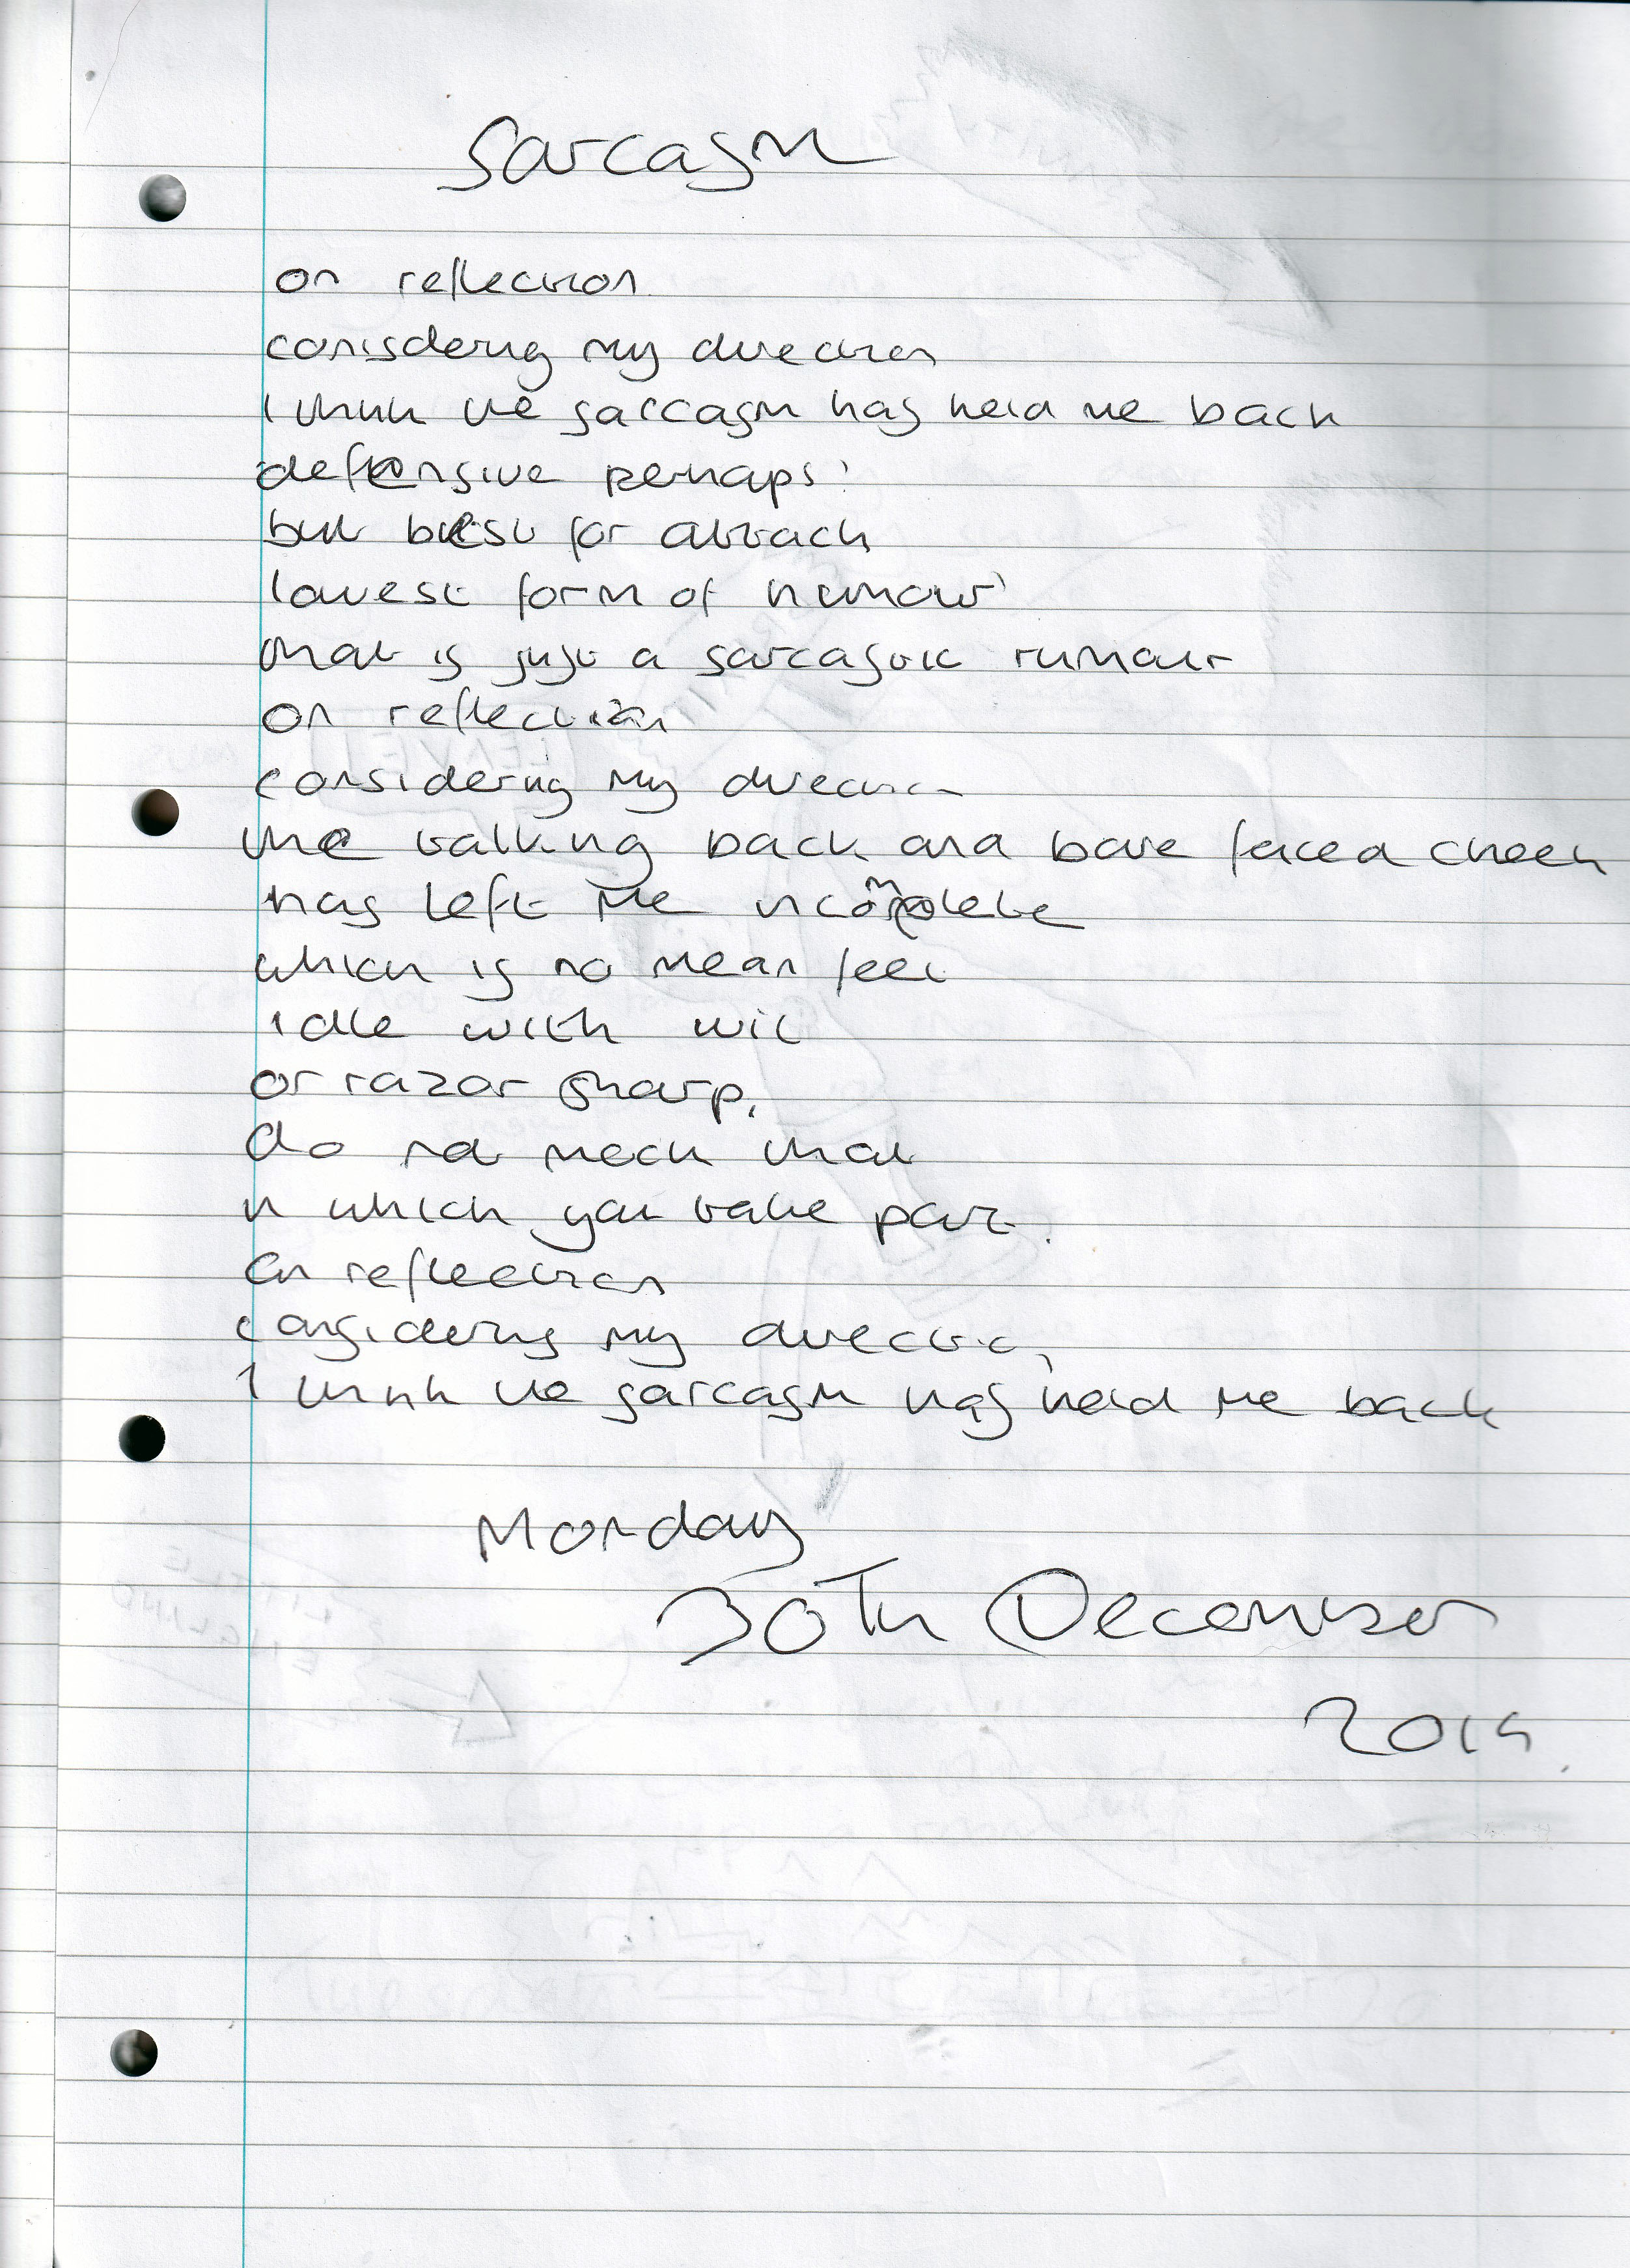 Sarcasm
on reflection
conisdering my direction
I think the sarcasm has held me back
defensive perhaps?
but best for attack
lowest form of humour?
that is just a sarcastic rumour
on reflection
considering my direction
the talking back and bare faced cheek
has left me incomplete
which is no mean feet
idle with wit
or razor sharp,
do not mock that
in which you take part.
on reflection
considering my direction,
I think the sarcasm has held me back
Monday
30th December
2019